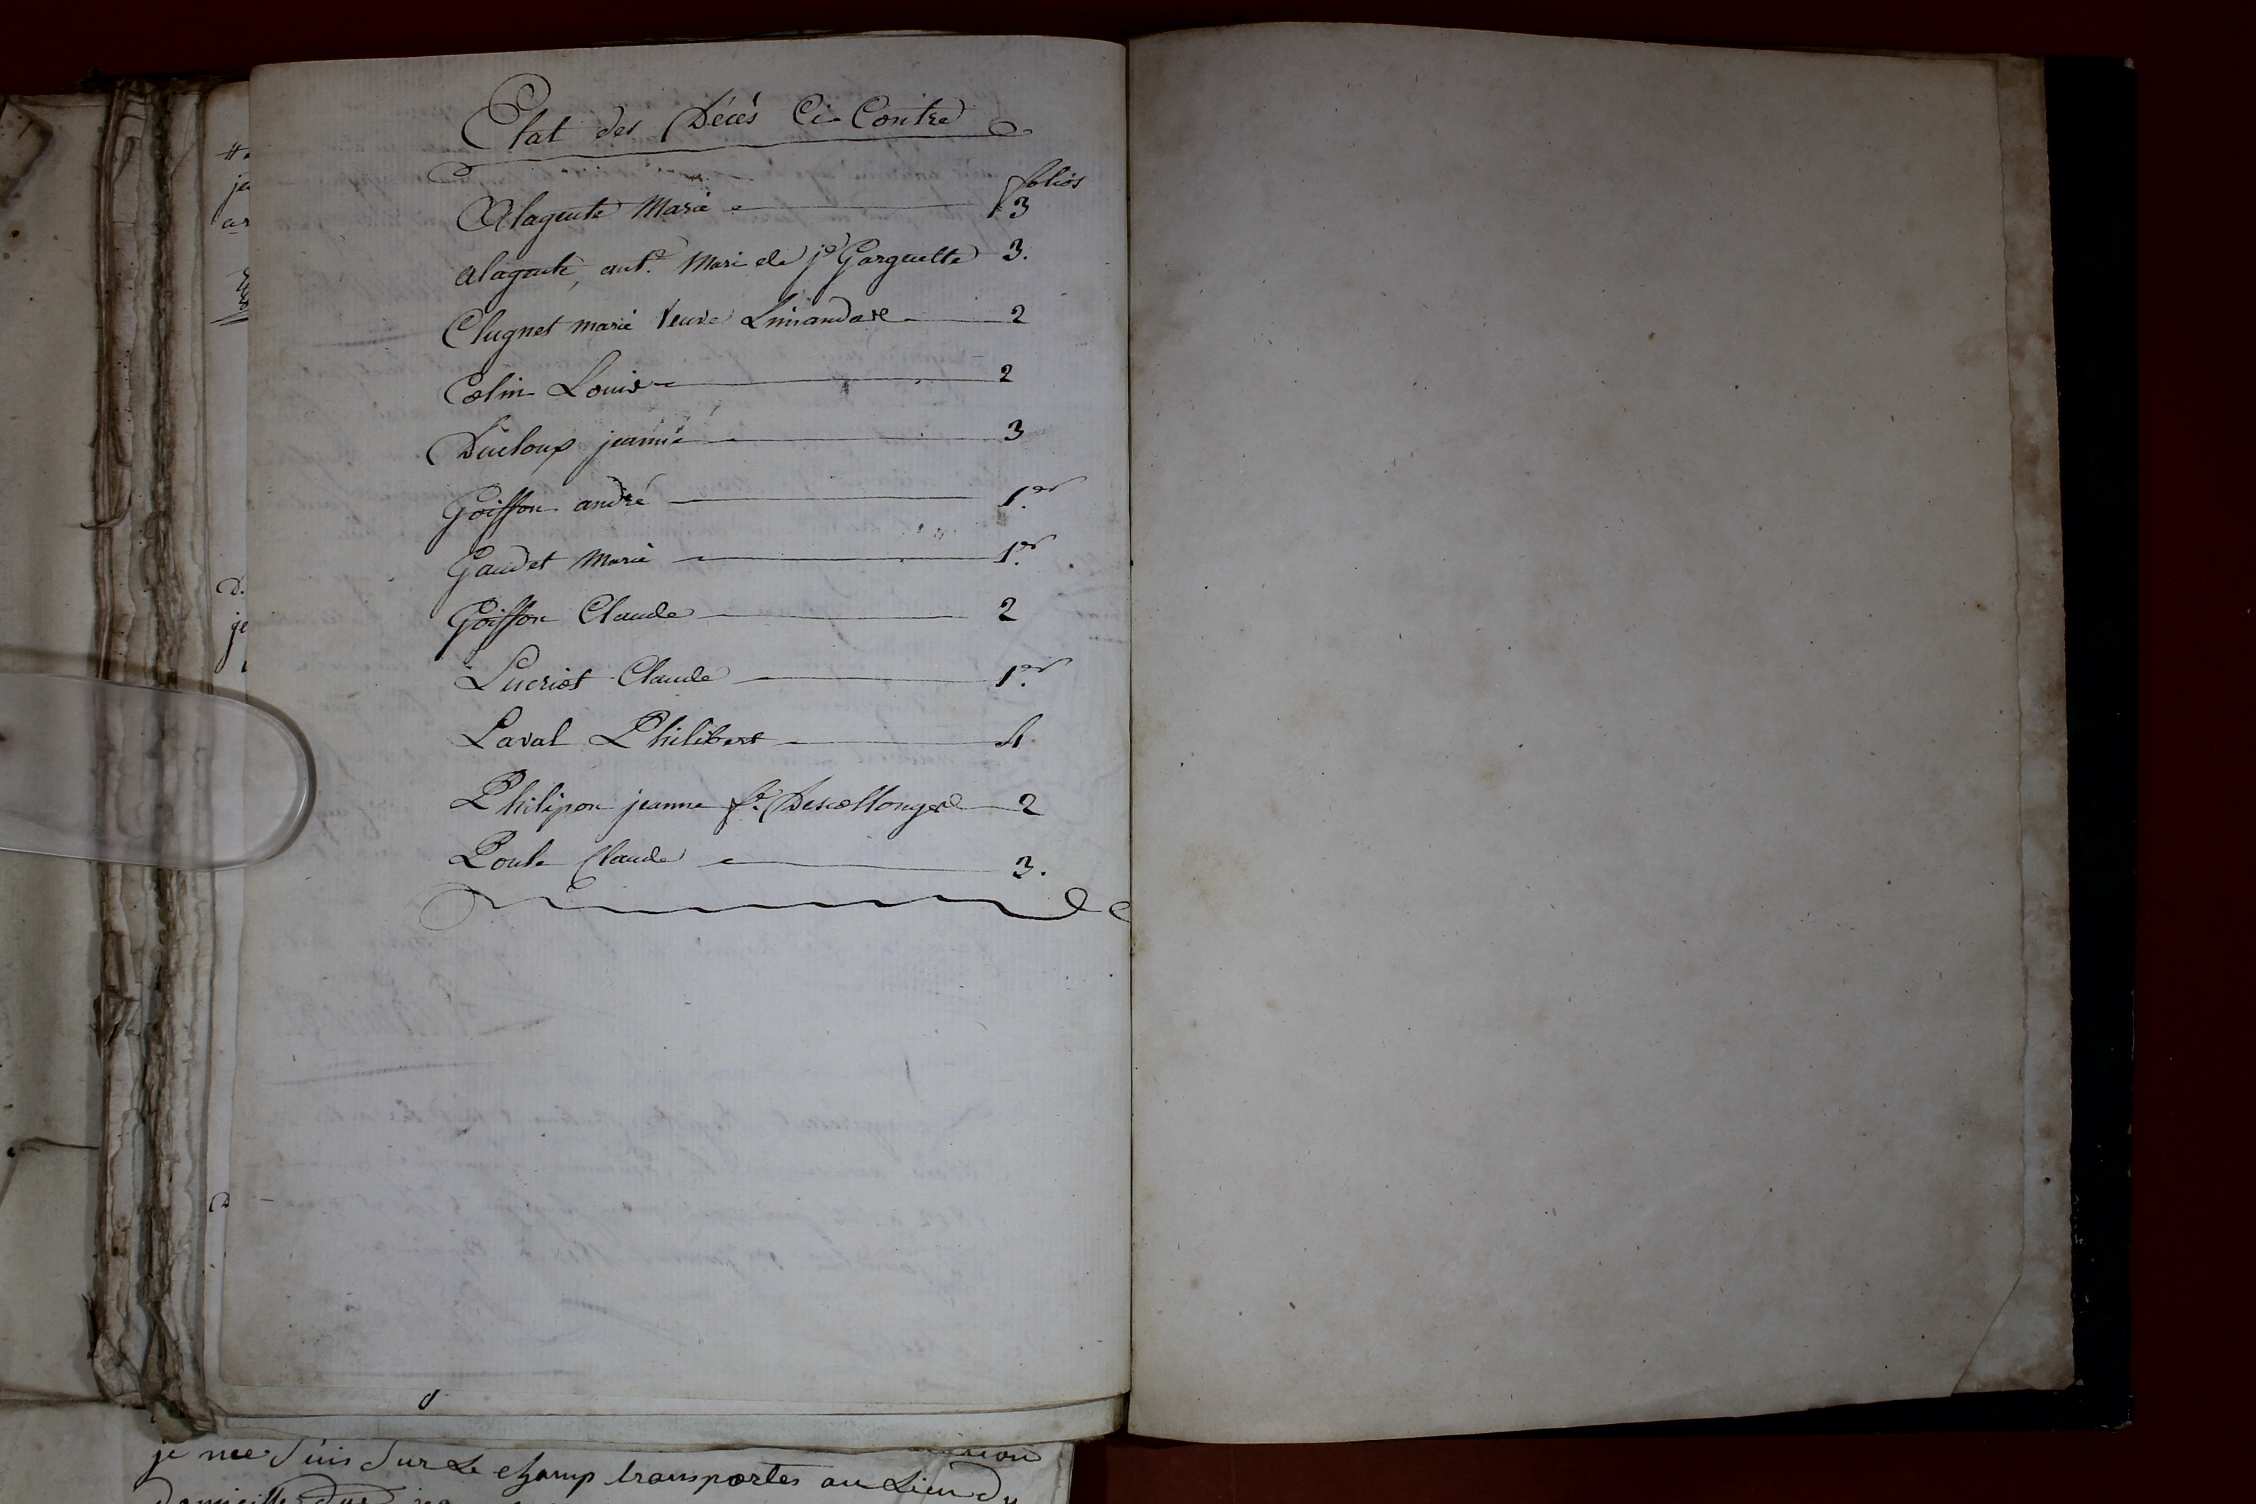 Etat des Décés Ci Contre
folios
Alagoute Marie 3
alagoute, ant.e Mari de j.e Garguette 3.
Clugnet marie Veuve Limandas 2
Colin Louis 2
Ducloup jeanne 3
Goiffon andré 1.er
Gaudet Marie 1.er
Goiffon Claude 2
Lucriot Claude 1.er
Laval Philibert 4
Philipon jeanne f.e Descollonge 2
Poute Claude 3.
je me suis sur Le champ transportes au Lieu du